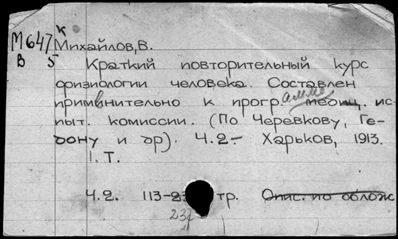 М647 к
Михайлов, В.
В 5
Краткий повторительный курс
физиологии человека. Составлен
применительно к прогр.амме медиц. ис
пыт. комиссии. (По Черевкову, Ге-
дону и др). Ч.2.- Харьков, 1913.
1. Т.
Ч.2. 113-23 тр. Опис. по облож